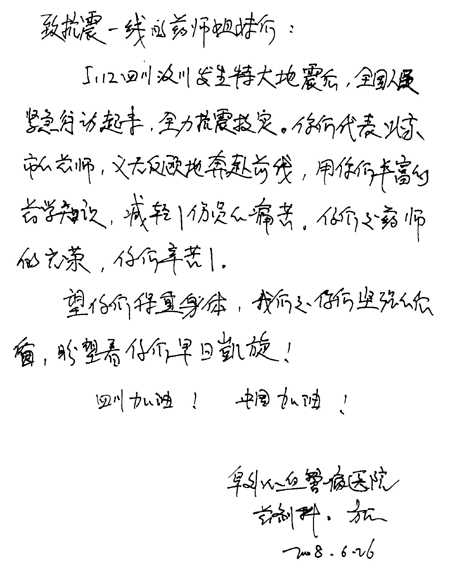 致抗震一线的药师姐妹们：
5.12四川汶川发生特大地震后，全国人民
紧急行动起来，全力抗震救灾。你们代表北京
市的药师，义无反顾地奔赴前线，用你们丰富的
药学知识，减轻了伤员的痛苦。你们是药师
的光荣，你们辛苦了。
望你们保重身体，我们是你们坚强的后
盾，盼望着你们早日凯旋！
四川加油！ 中国加油！
阜外心血管病医院
药剂科
2008.6.26